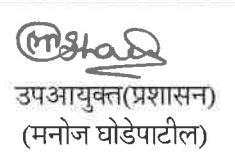 उपआयुक्त(प्रशासन)
(मनोज घोडेपाटील)